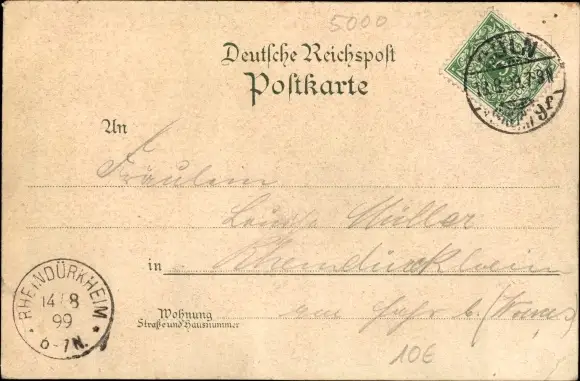 5000
Deutsche Reichspost
Postkarte
CÖLN
An
Fräulein
Müller
in Rheindürkheim
RHEINDÜRKHEIM
14/8
99
6-7N.
Wohnung
Straße und Hausnummer
am b. (Worms)
10€